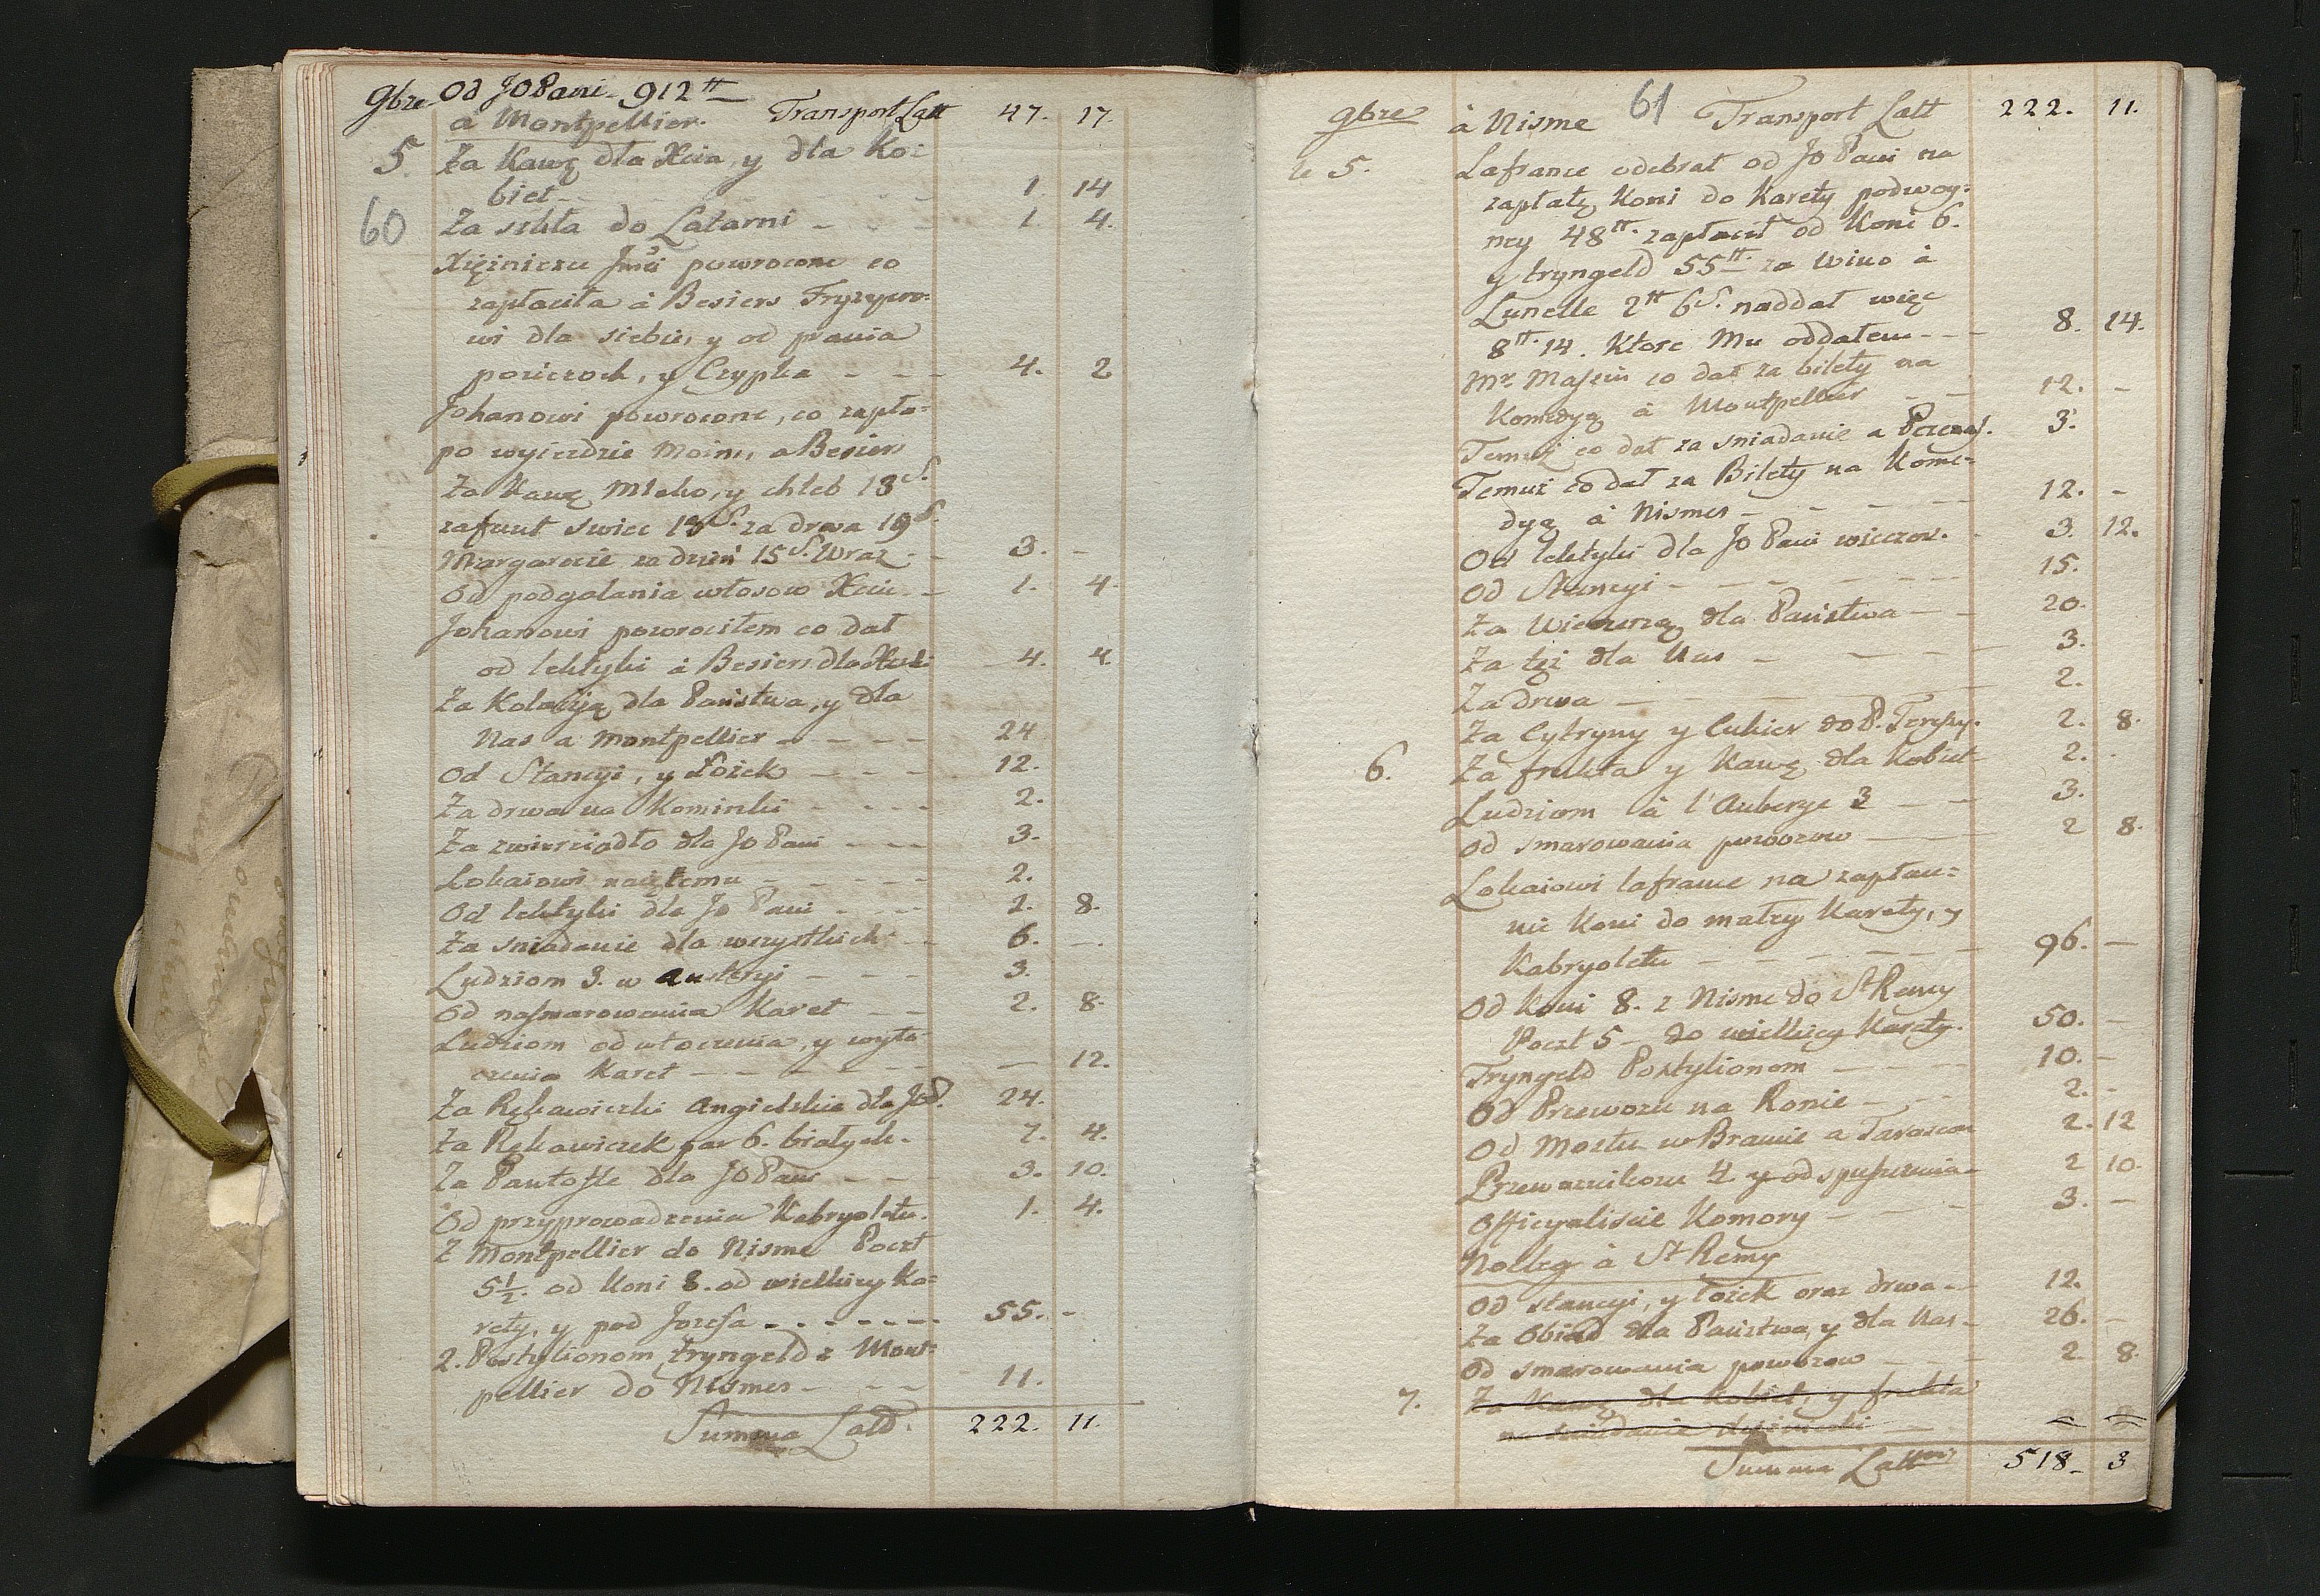 9bre Od JO Pani 912 tt
a Montpellier. Transport Latt 47. 17.
5. Za Kawę dla Xcia, y dla Ko:
biet 1. 14
60 Za szkła do Latarni 1. 4.
Xiężniczce Jmci powrocone co
zapłaciła à Besiers Fryzyero:
wi dla siebie, y od prania
pończoch, y Czypka 4. 2
Johanowi powrocone, co zapła:
po wyieździe Moim, a Besiers
Za Kawę Mleko, y chleb 18 S.
za funt swiec S. za drwa 19 S.
Margarecie za dzień 15 S. Wraz 3. -
Od podgolania włosow Xciu 1. 4.
Johanowi powrociłem co dał
od lektyki à Besiers dla 4. 4.
Za Kolacyą dla Państwa, y dla
Nas a Montpellier 24
Od Stancyi, y Łożek 12.
Za drwa na Kominki 2.
Za zwierciadło dla Jo Pani 3.
Lokaiowi naiętemu 2.
Od lektyki dla Jo Pani 2. 8.
Za sniadanie dla wszystkich 6. -
Ludziom 3. w Austeryi 3.
Od nasmarowania Karet 2. 8.
Ludziom od wtoczenia, y wyto
czenia Karet - 12.
Za Rękawiczki Angielskie dla JoP. 24.
Za Rękawiczek par 6. białych. 7. 4.
Za Pantofle dla JO Pani 3. 10.
Od przyprowadzenia Kabryoletu. 1. 4.
Z Montpellier do Nisme Poczt
5½. od Koni 8. od wielkiey Ka:
rety, y pod Jozefa 55. -
2. Postylionom tryngeld z Mont:
pellier do Nismes 11.
Summa Latt. 222. 11.
61
9bre à Nisme Transport Latt 222. 11.
le 5. Lafrance odebrał od Jo Pani na
zapłatę Koni do Karety podwoy:
ney 48 tt. zapłacił od Koni 6.
y tryngeld 55 tt. za Wino à
Lunelle 2 tt 6 S. naddał więc
8 tt. 14. Ktore Mu oddałem 8. 14.
Mr. co dał za bilety na
Komedyą à Montpellier 12. -
Temuż co dał za sniadanie a 3.
Temuż co dał za Bilety na Kome:
dyą à Nismes 12. -
Od lektyki dla Jo Pani wieczor. 3. 12.
Od Stancyi 15.
Za Wieczerzą dla Państwa 20.
Za tęż dla Nas 3.
Za drwa 2.
Za Cytryny y Cukier do P. 2. 8.
6. Za frukta y Kawę dla Kobiet 2. -
Ludziom à l'Auberge 3 3.
Od smarowania powozow 2 8.
Lokaiowi lafrance na zapłace:
nie Koni do małey Karety, y
Kabryoletu 96. -
Od Koni 8. z Nisme do St Remy
Poczt 5 - do wielkiey Karety. 50. -
Tryngeld Postylionom 10. -
Od Przewozu na Ronie 2. -
Od Mostu w Bramie a Tarascon 2. 12
Przewoznikom 4 y od spuszczenia 2 10.
Officyaliscie Komory 3. -
Nolleg à St Remy
Od stancyi, y łożek oraz drwa 12.
Za Obiad dla Państwa, y dla Nas 26. -
Od smarowania powozow 2 8.
7. Za Kawę dla Kobiet, y frukta
na sniadanie
Summa Latt 518 - 3